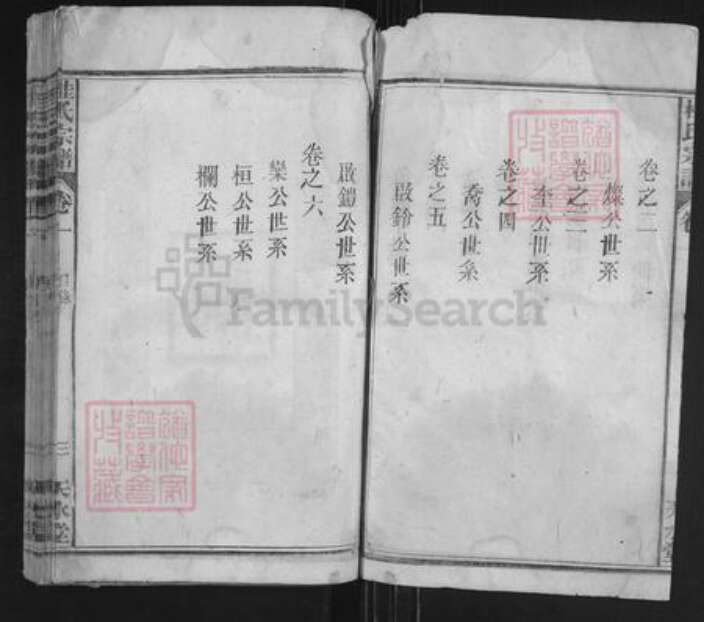 卷之二
燦公世系
卷之三
奎公世系
卷之四
喬公世系
卷之五
啟鈴公世系
啟鎧公世系
卷之六
欒公世系
桓公世系
欄公世系
氏宗譜
卷一
三
FamilySearch